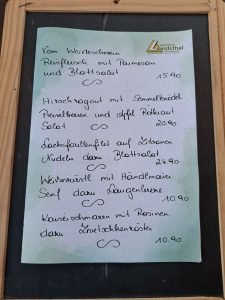 Vom Weideschwein
Reisfleisch mit Parmesan
und Blattsalat
15.90
Hirschragout mit Semmelknödel
Preiselbeeren und Apfel Rotkraut
Salat
20.90
Lachsforellenfilet auf Zitronen
Nudeln dazu Blattsalat
24.90
Weisswürstl mit Händlmaier
Senf dazu Laugenbreze
10.90
Kaiserschmarren mit Rosinen
dazu Zwetschkenröster
10.90